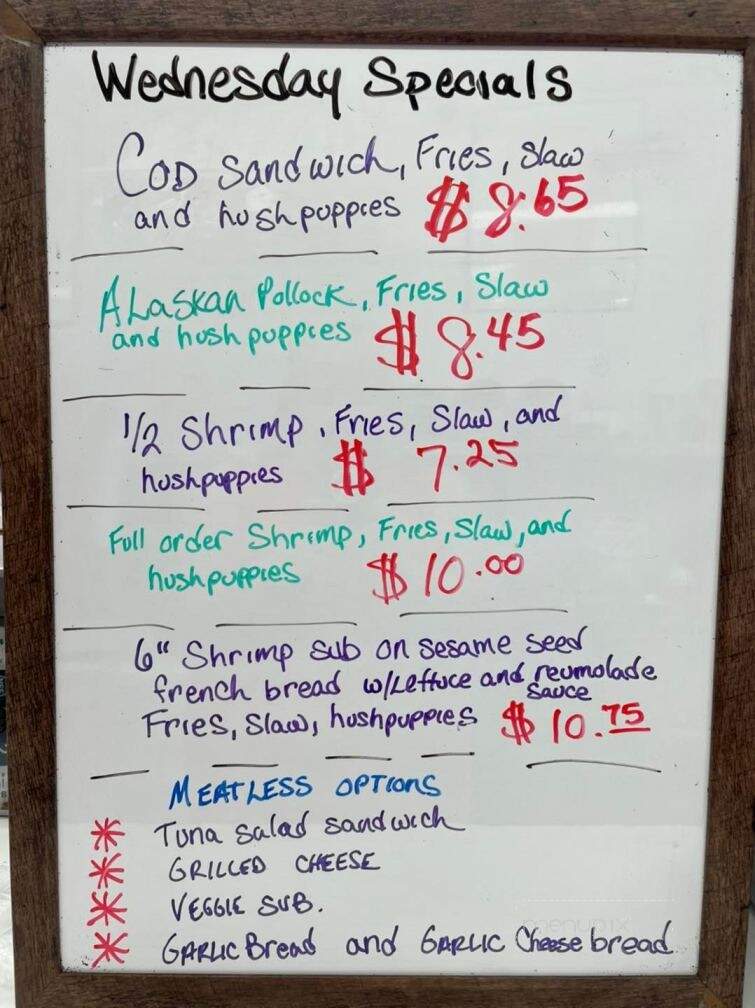 Wednesday Specials
Cod Sandwich, Fries, Slaw
and hushpuppies $8.65
Alaskan Pollock, Fries, Slaw
and hushpuppies $8.45
1/2 Shrimp, Fries, Slaw, and
hushpuppies $7.25
Full order Shrimp, Fries, Slaw, and
hushpuppies $10.00
6" Shrimp sub on sesame seed
french bread w/Lettuce and reumolade
sauce
Fries, Slaw, hushpuppies $10.75
MEATLESS OPTIONS
* Tuna salad sandwich
* GRILLED CHEESE
* VEGGIE SUB.
* GARLIC Bread and GARLIC Cheese bread
menupix